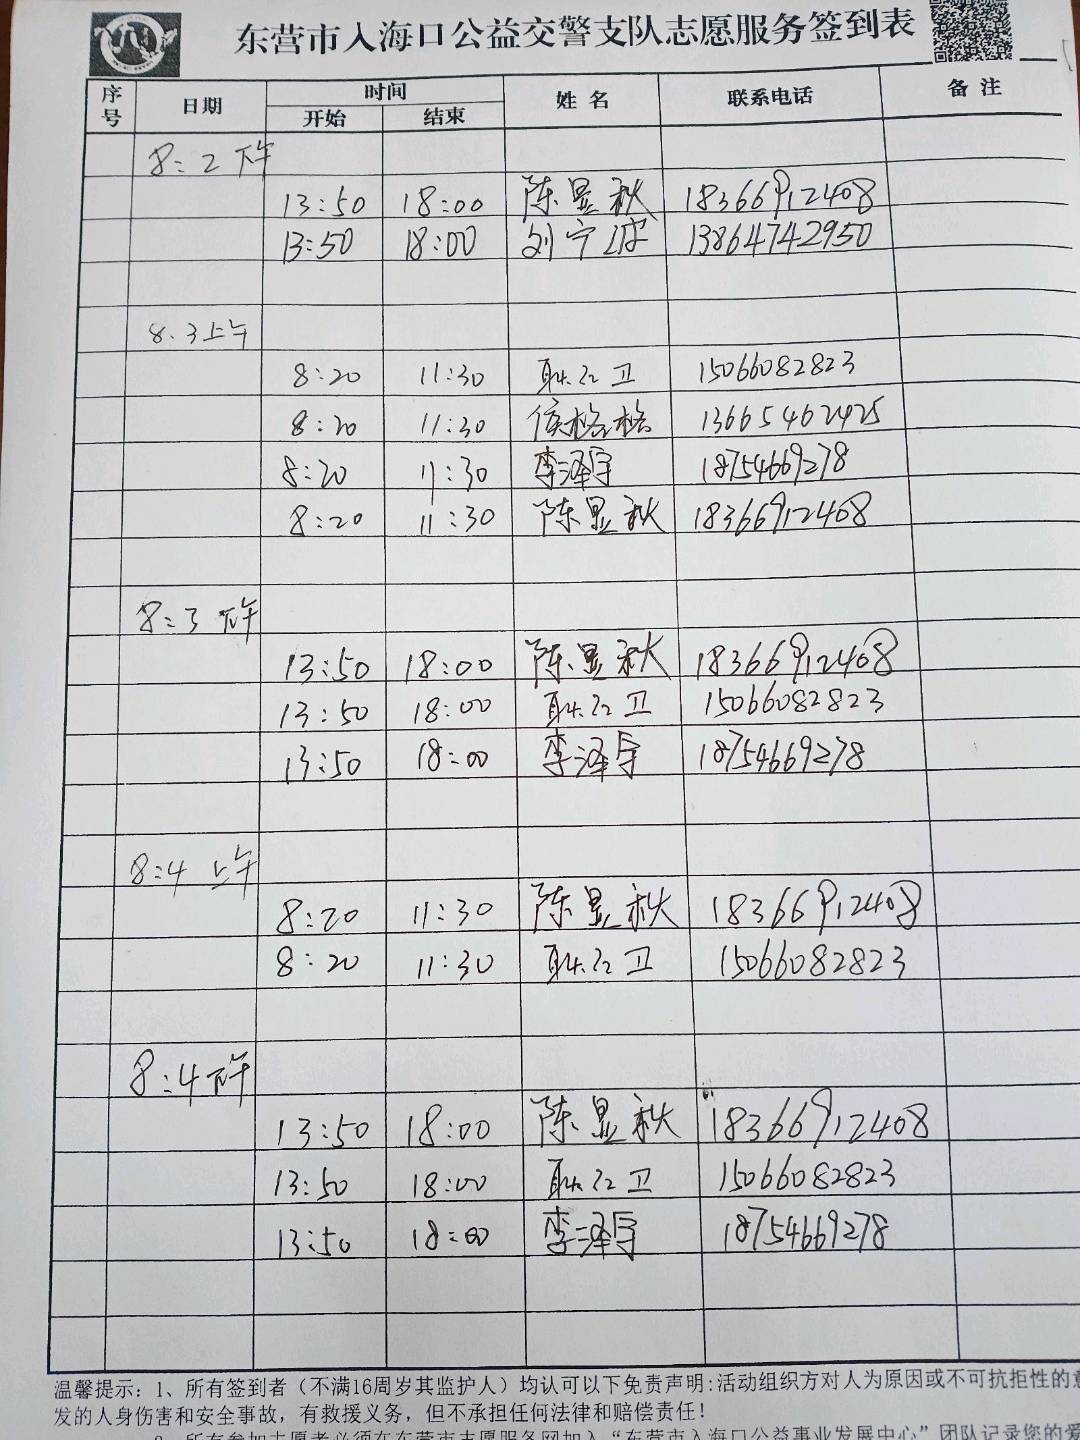 东营市入海口公益交警支队志愿服务签到表
序号 日期 时间 姓名 联系电话 备注
开始 结束
8:2 下午
13:50 18:00 陈显秋 18366912408
13:50 18:00 刘宁 13864742950
8.3上午
8:20 11:30 耿红卫 15066082823
8:20 11:30 侯格格 13665462425
8:20 11:30 李泽宇 18754669278
8:20 11:30 陈显秋 18366912408
8:3 下午
13:50 18:00 陈显秋 18366912408
13:50 18:00 耿红卫 15066082823
13:50 18:00 李泽宇 18754669278
8:4 上午
8:20 11:30 陈显秋 18366912408
8:20 11:30 耿红卫 15066082823
8:4 下午
13:50 18:00 陈显秋 18366912408
13:50 18:00 耿红卫 15066082823
13:50 18:00 李泽宇 18754669278
温馨提示：1、所有签到者（不满16周岁其监护人）均认可以下免责声明:活动组织方对人为原因或不可抗拒性的意
发的人身伤害和安全事故，有救援义务，但不承担任何法律和赔偿责任！
2、所有参加志愿者必须在东营市志愿服务网加入“东营市入海口公益事业发展中心”团队记录您的爱